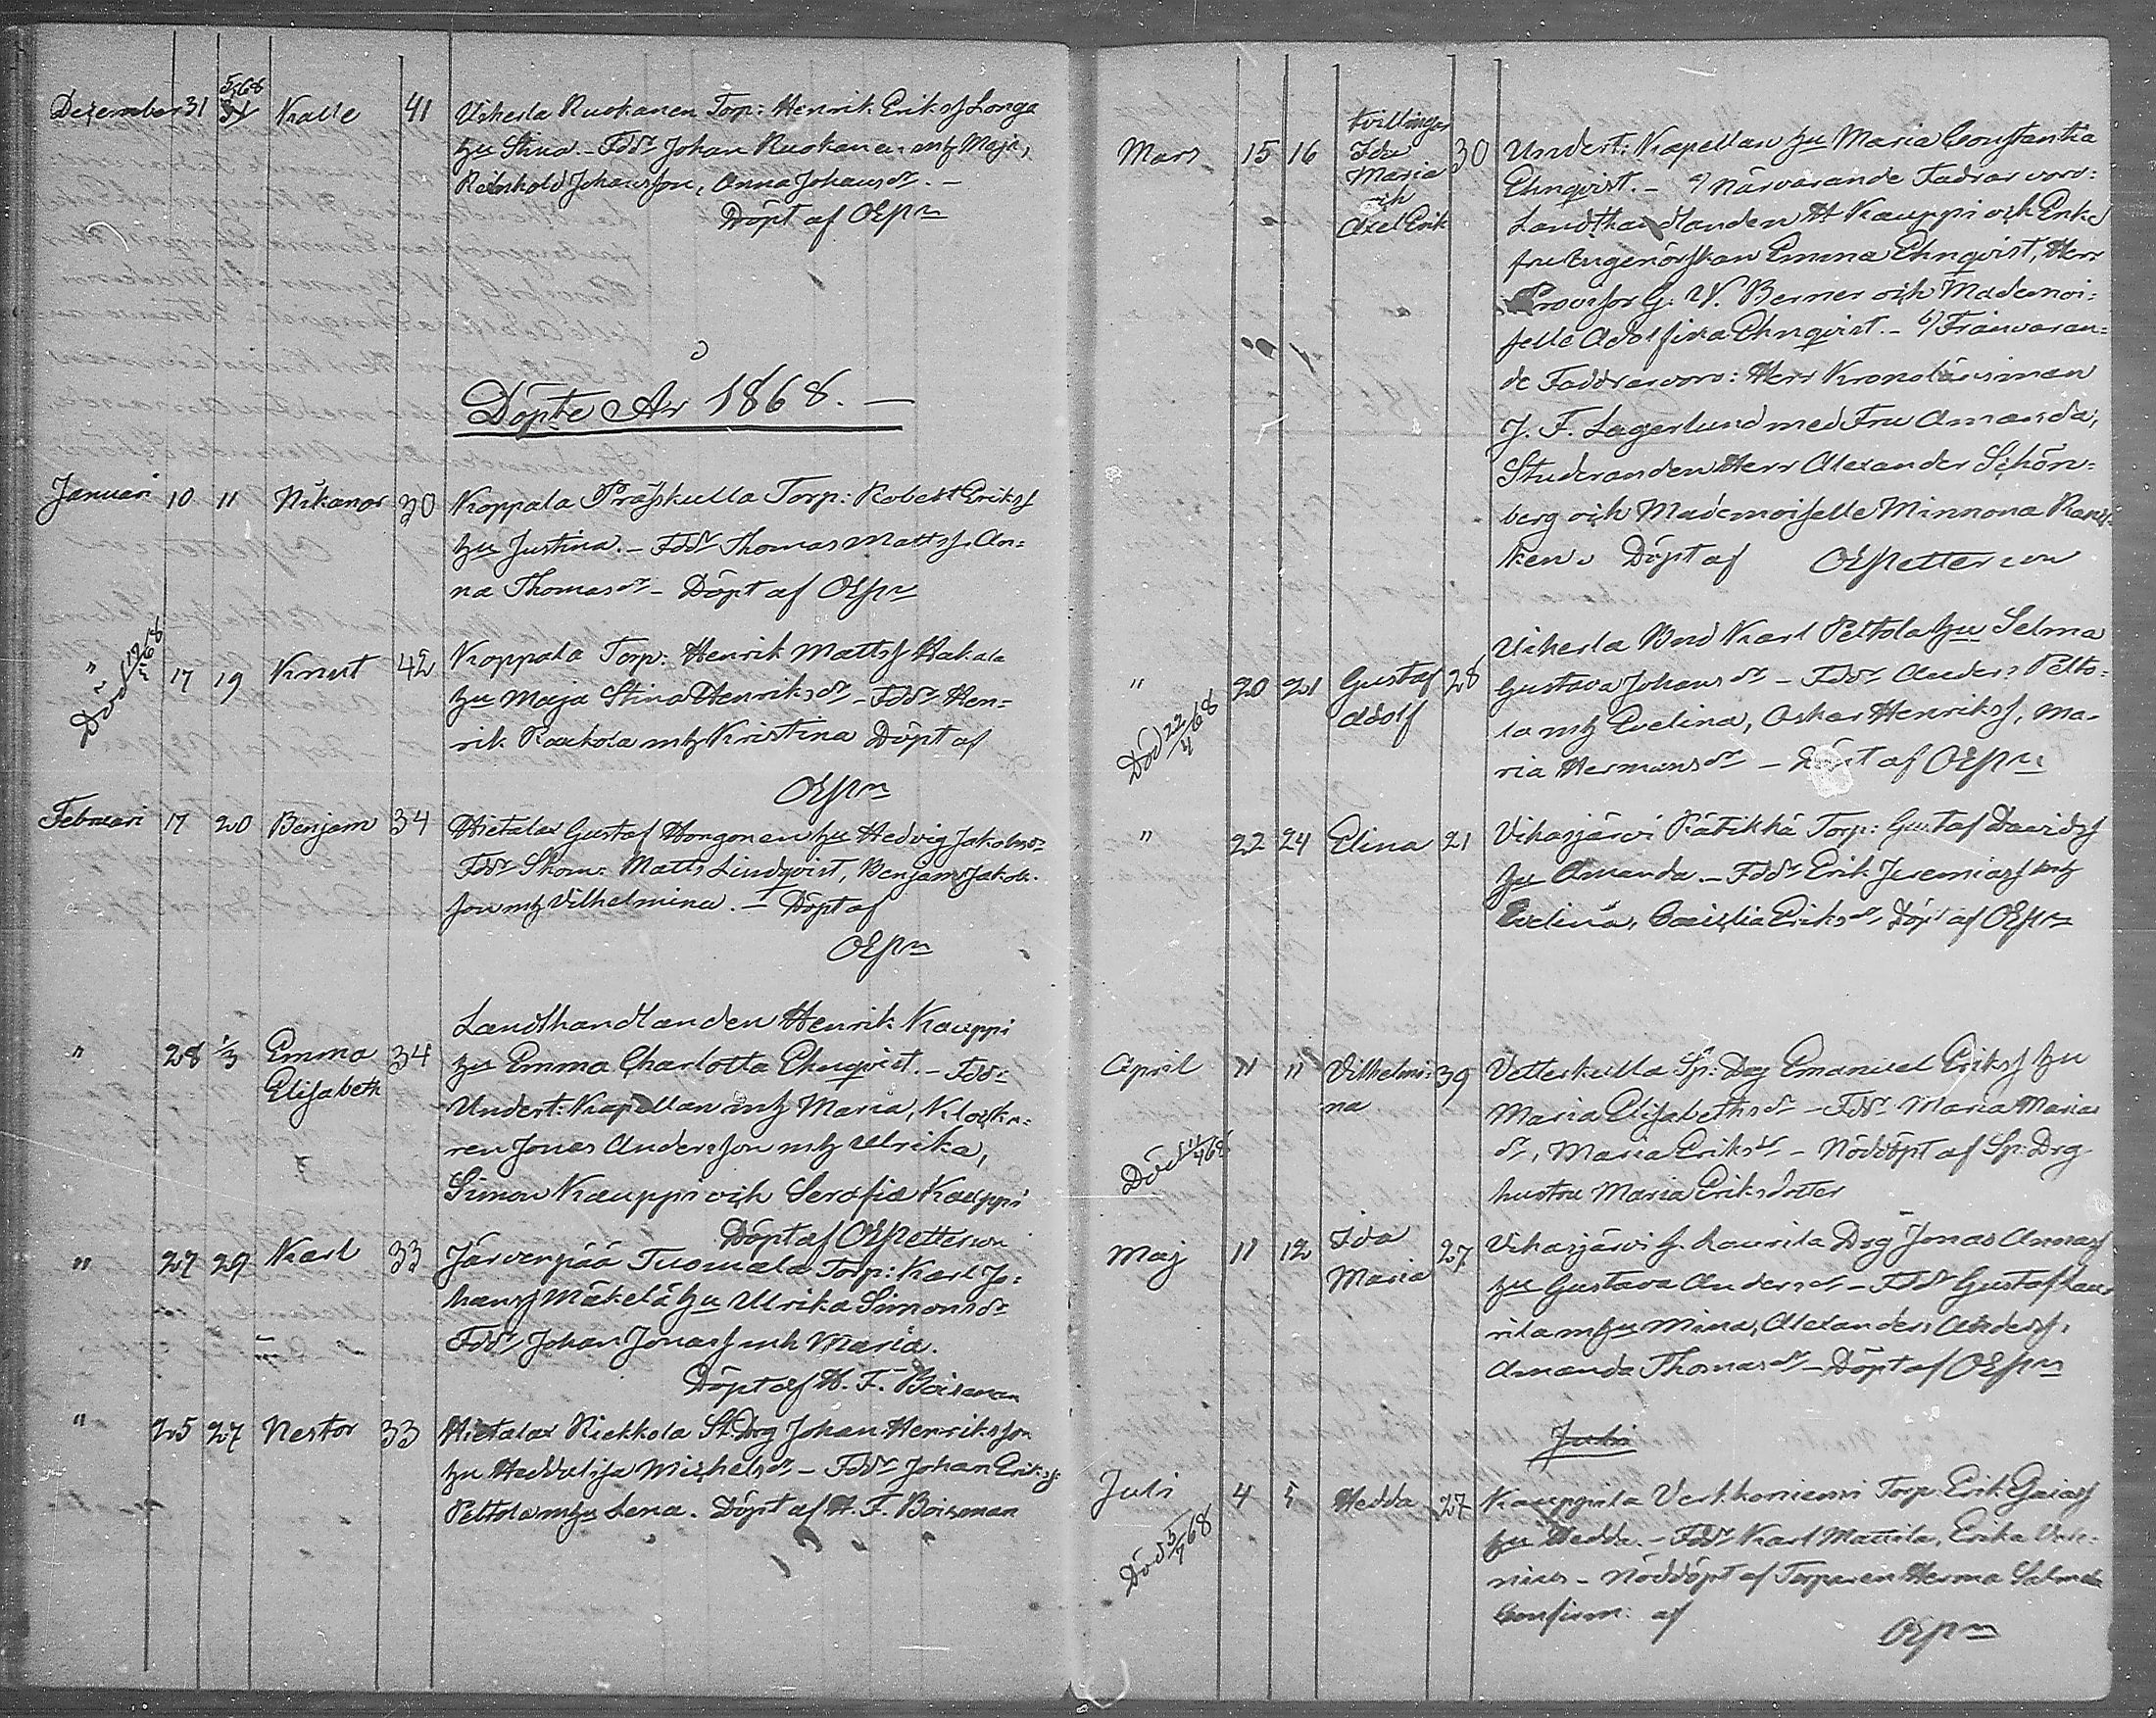 Dezember 31 5/1 68 31 Kalle 41 Uikerla Ruokanen Torp: Henrik Eriksf Longa
hu Stina. – Fdd: Johan Ruokanen mh Maja,
Reinhold Johansson, Anna Johansdr. –
Döpt af OEPn
Döpte År 1868. –
Januari 10 11 Nikanor 30 Koppala Prässkulla Torp: Robert Eriksf
hu Justina. – Fddr Thomas Mattsf. An=
na Thomasdr – Döpt af OEPn
" 17 19 Knut 42 Koppala Torp: Henrik Mattsf Hakala
Död 12/5 68
hu Maja Stina Henriksdr – Fddr Hen=
rik Raukola mh Kristina Döpt af
OEPn
Februari 17 20 Benjam 34 Hietalax Gustaf Hongonen hu Hedvig Jakobsdr
Fddr Skom: Matts Lindqvist, Benjam Jakob=
son mh Vilhelmina. – Döpt af
OEPn
Landthandlanden Henrik Kauppi
" 28 1/3 Emma 34 hu Emma Charlotta Ehnqvist. – Fddr
Elisabeth Undert: Kapellan mh Maria, Klocka=
ren Jonas Andersson mh Ulrika,
Simon Kauppi och Serafia Kauppi
Döpt af OEPetterson
" 27 29 Karl 33 Järvenpää Tuomala Torp: Karl Jo=
hansf Mäkelä hu Ulrika Simonsdr
Fddr Johan Jonasf mh Maria.
Döpt af H. F. Boisman
" 25 27 Nestor 33 Hietalax Riekkola St: Drg Johan Henriksson
hu Heddalisa Michelsdr – Fddr Johan Eriksf
Peltola mhu Lena. Döpt af H. F. Boisman
Mars 15 16 Tvillingar Ida Maria och Axel Erik 30 Undert: Kapellan hu Maria Constantia
Ehnqvist. – a/ Närvarande Faddrar voro:
Landthandlanden H Kauppi och Enke
fru Ingeniörskan Emma Ehnqvist, Herr
Provisor G. W. Berner och Mademoi=
selle Adolfina Ehnqvist. – b/ Frånvaran=
de Faddrar voro: Herr Kronolänsman
J. F. Lagerlund med Fru Amanda,
Studeranden Herr Alexander Schön=
berg och Mademoiselle Minnona
ken. Döpt af OEPetterson
Uikerla Bnd Karl Peltola hu Selma
" 20 21 Gustaf 28 Gustava Johansdr – Fddr Anders Pelto=
Adolf la mh Evelina, Oskar Henriksf, Ma=
Död 22/4 68
ria Hermansdr – Döpt af OEPn
" 22 24 Elina 21 Vihasjärvi Rätikkä Torp: Gustaf Davidsf
hu Amanda. – Fddr Erik Jeremiasf mh
Evelina, Caecilia Eriksdr Döpt af OEPn
April 11 11 Vilhelmi= 39 Vetterkulla Sp: Drg Emanuel Eriksf hu
na Maria Elisabethsdr – Fddr Maria Marias
Död 11/4 68
dr, Maria Eriksdr – Nöddöpt af Sp: Drg
hustru Maria Eriksdotter
Maj 11 12 Ida 27 Vihasjärvi G. Laurila Drg Jonas Annasf
Maria hu Gustava Andersdr – Fddr Gustaf Lau=
rila mhu Mina, Alexander Andersf,
Amanda Thomasdr – Döpt af OEPn
Juli
Juli 4 5 Hedda 27 Kauppila Verkkoniemi Torp: Erik Gaiasf
Död 5/7 68
hu Hedda. – Fddr Karl Mattila, Erika
– Nöddöpt af Torparen Herma Salmela
Confirm: af
OEPn